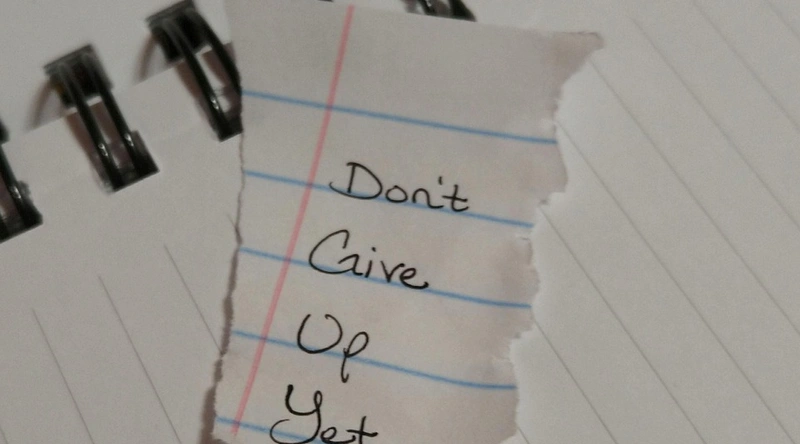 Don't
Give
Up
Yet